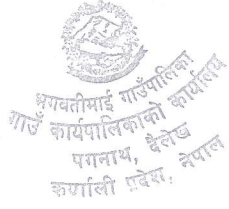 भगवतीमाई गाउँपालिका
गाउँ कार्यपालिकाको कार्यालय
पगनाथ, दैलेख
कर्णाली प्रदेश, नेपाल